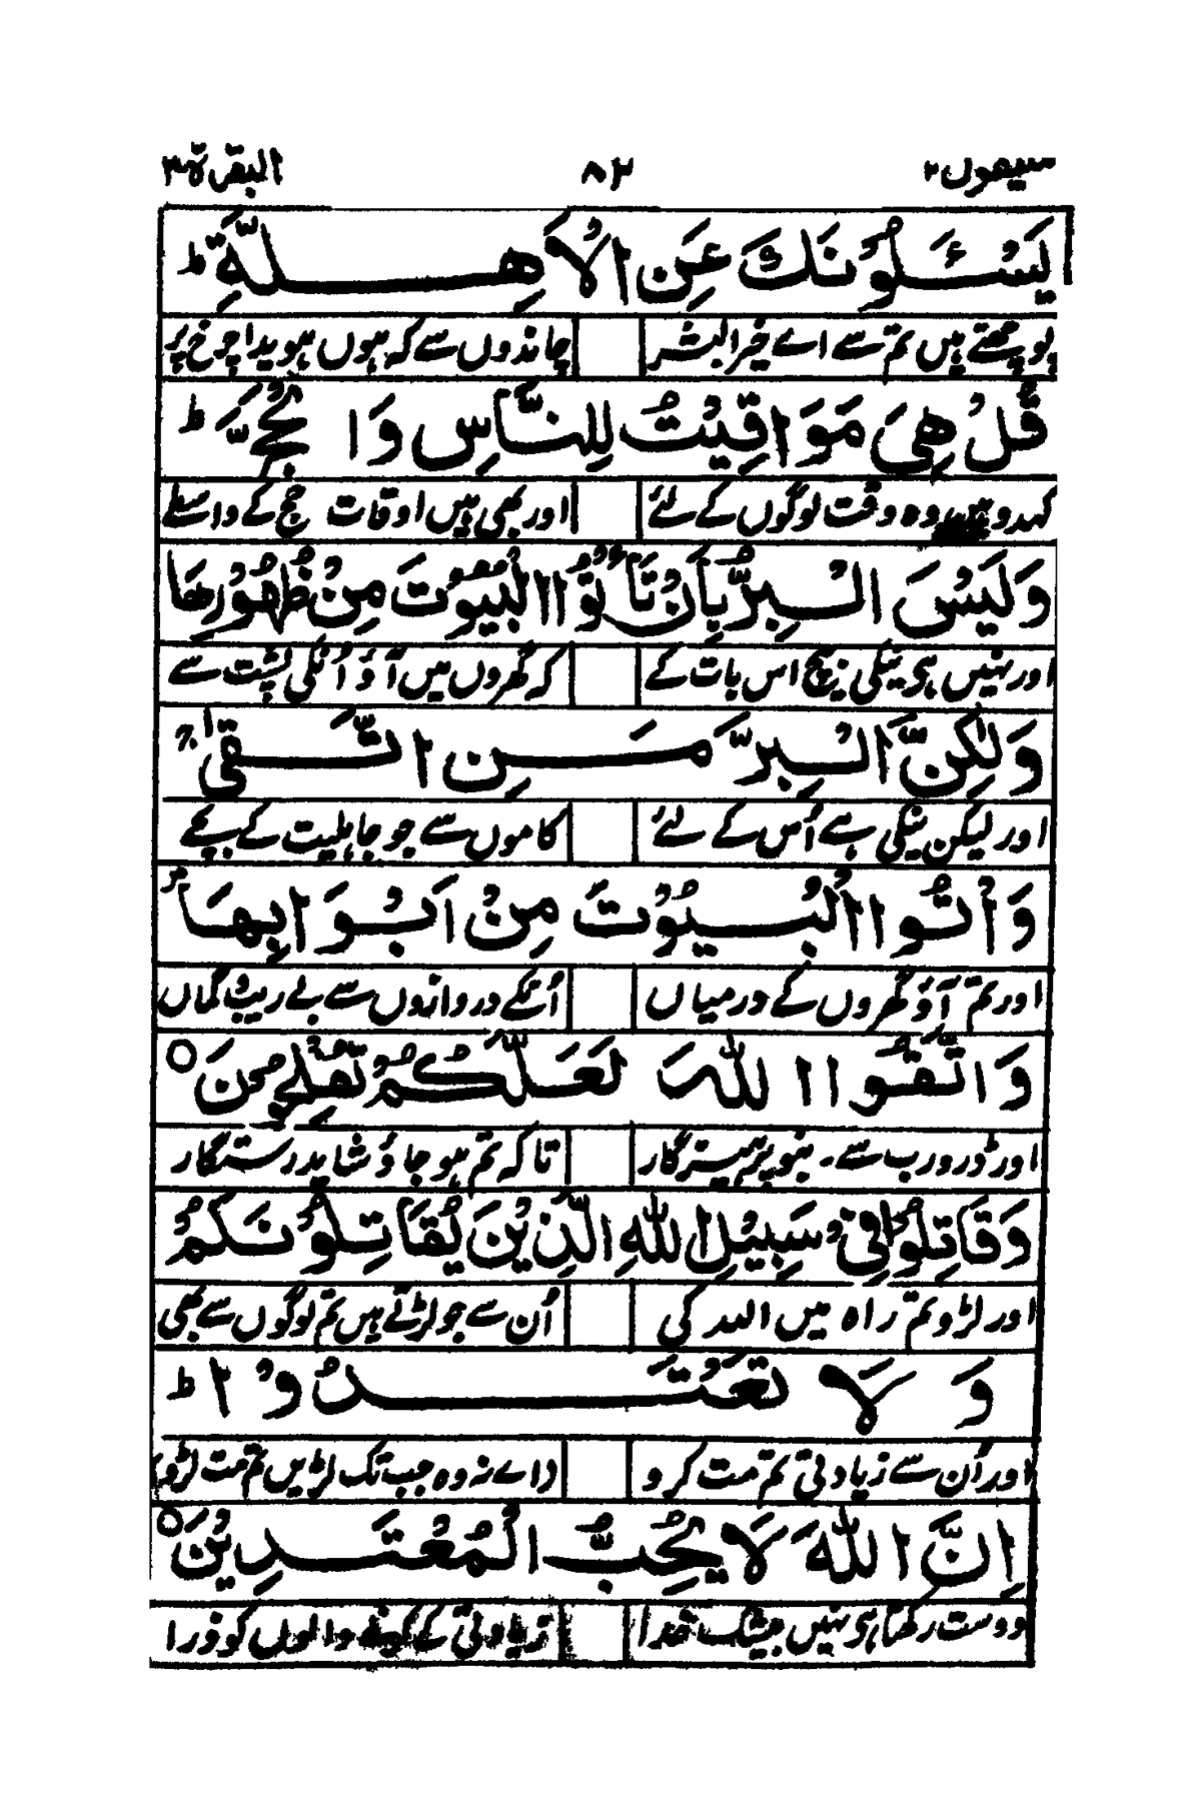 سیقول ۲ ۸۲ البقرۃ ۲
يَسْـَٔلُوْنَكَ عَنِ الْاَهِـلَّةِ ؕ
پوچھتے ہیں تم سے اے خیر البشر چاندوں سے کہ ہوں ہویدا چرخ پر
قُلْ هِىَ مَوَاقِيْتُ لِلنَّاسِ وَالْحَجِّ ؕ
کہدو ہیں وہ وقت لوگوں کے لئے اور بھی ہیں اوقات حج کے واسطے
وَلَيْسَ الْبِرُّ بِاَنْ تَاْتُوا الْبُيُوْتَ مِنْ ظُهُوْرِهَا
اور نہیں ہی نیکی بیچ اس بات کے کہ گھروں میں آؤ اُنکی پشت سے
وَلٰكِنَّ الْبِرَّ مَـنِ اتَّـقٰى ۚ
اور لیکن نیکی ہے اُس کے لئے کاموں سے جو جاہلیت کے بچے
وَاْتُوا الْبُيُوْتَ مِنْ اَبْوَابِهَا
اور تم آؤ گھروں کے درمیاں اُنکے دروازوں سے بے ریب و گماں
وَاتَّقُوا اللّٰهَ لَعَلَّكُمْ تُفْلِحُوْنَ ○
اور ڈرو رب سے ۔ بنو پرہیزگار تاکہ تم ہو جاؤ شاید رستگار
وَقَاتِلُوْا فِىْ سَبِيْلِ اللّٰهِ الَّذِيْنَ يُقَاتِلُوْنَكُمْ
اور لڑو تم راہ میں اللہ کی اُن سے جو لڑتے ہیں تم لوگوں سے بھی
وَلَا تَعْتَـدُوْا ؕ
اور اُن سے زیادتی تم مت کرو وہ جب تک لڑیں تم مت لڑو
اِنَّ اللّٰهَ لَا يُحِبُّ الْمُعْتَـدِيْنَ ○
دوست رکھتا ہی نہیں بیشک خدا زیادتی کے کرنے والوں کو ذرا